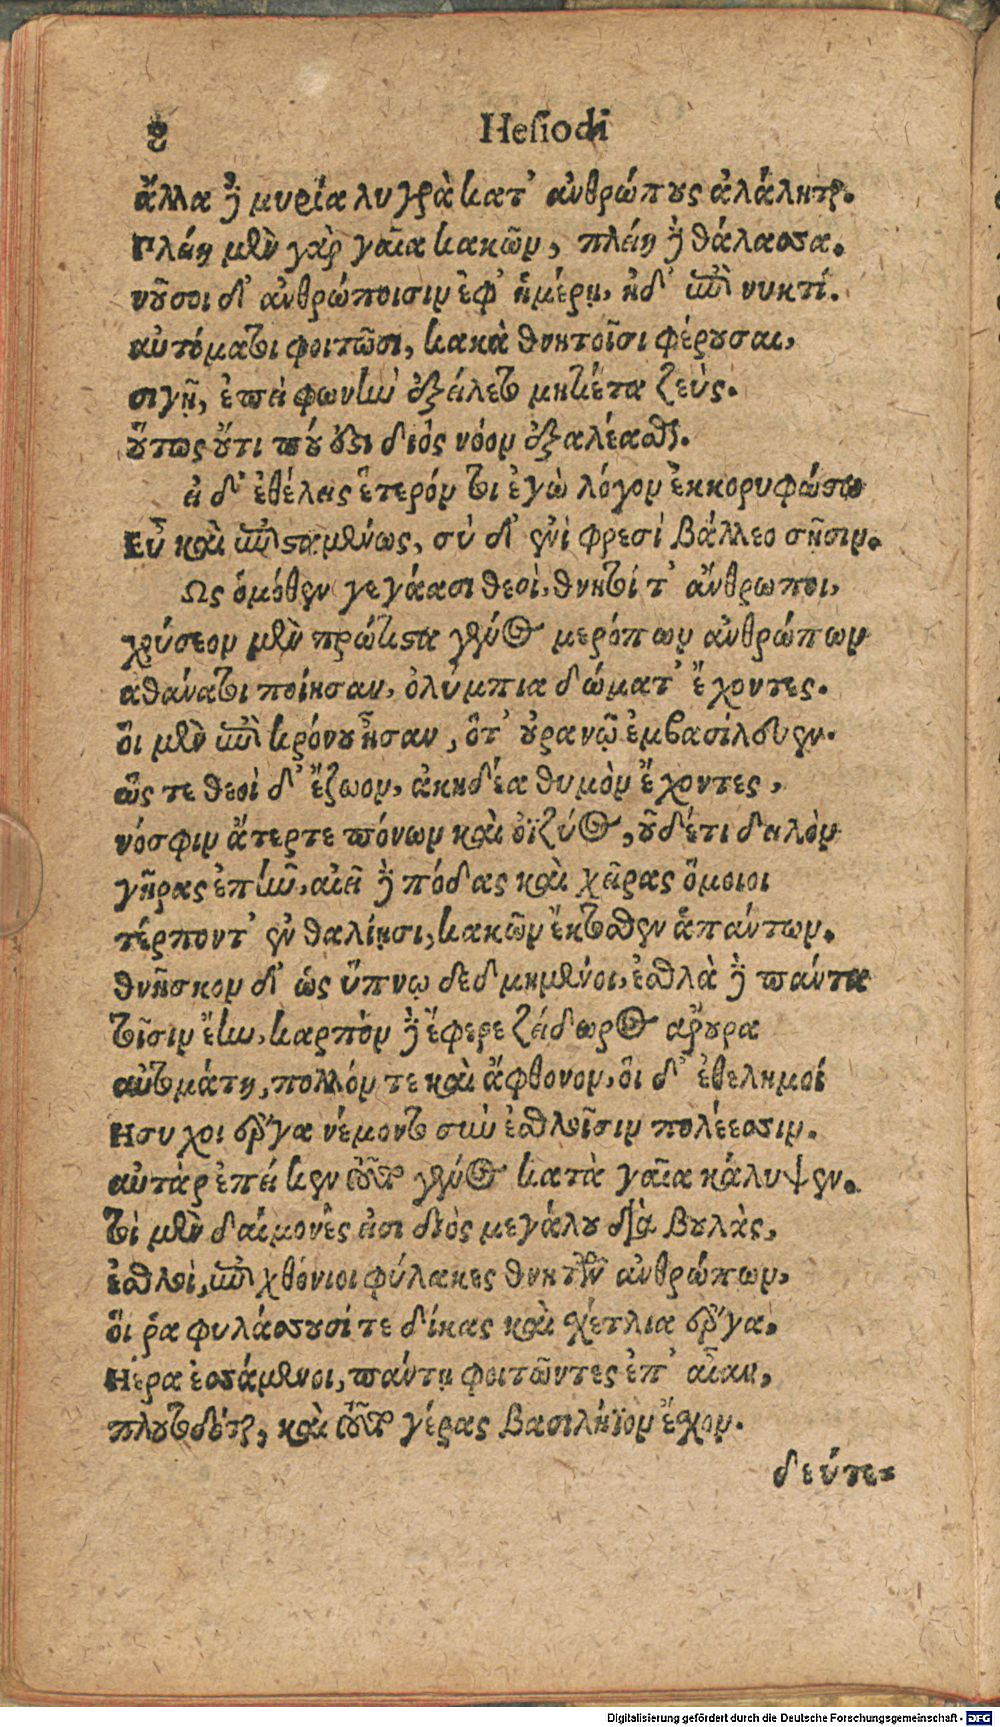 8 Hesiodi
ἄλλα δὲ μυρία λυγρὰ κατ' ἀνθρώπους ἀλάληται.
Πλείη μὲν γὰρ γαῖα κακῶν, πλείη δὲ θάλασσα.
νοῦσοι δ' ἀνθρώποισιν ἐφ' ἡμέρῃ, ἠδ' ἐπὶ νυκτί.
αὐτόματοι φοιτῶσι, κακὰ θνητοῖσι φέρουσαι,
σιγῇ, ἐπεὶ φωνὴν ἐξείλετο μητίετα ζεύς.
οὕτως οὔτι που ἔστι διός νόον ἐξαλέασθαι.
εἰ δ' ἐθέλεις ἕτερόν τοι ἐγὼ λόγον ἐκκορυφώσω
Εὖ καὶ ἐπισταμένως, σύ δ' ἐνὶ φρεσί βάλλεο σῇσιν.
Ως ὁμόθεν γεγάασι θεοὶ, θνητοί τ' ἄνθρωποι,
χρύσεον μὲν πρώτιστα γένος μερόπων ἀνθρώπων
ἀθάνατοι ποίησαν, ὀλύμπια δώματ' ἔχοντες.
οἳ μὲν ἐπὶ κρόνου ἦσαν, ὅτ' οὐρανῷ ἐμβασίλευεν.
ὥς τε θεοὶ δ' ἔζωον, ἀκηδέα θυμὸν ἔχοντες,
νόσφιν ἄτερτε πόνων καὶ ὀϊζύος, οὐδέτι δειλὸν
γῆρας ἐπῆν, αἰεὶ δὲ πόδας καὶ χεῖρας ὅμοιοι
τέρποντ' ἐν θαλίῃσι, κακῶν ἔκτοσθεν ἁπάντων.
θνῆσκον δ' ὡς ὕπνῳ δεδμημένοι, ἐσθλὰ δὲ πάντα
τοῖσιν ἔην, καρπὸν δὲ ἔφερε ζείδωρος ἄρουρα
αὐτομάτη, πολλόν τε καὶ ἄφθονον, οἳ δ' ἐθελημοί
Ησυχοι ἔργα νέμοντο σὺν ἐσθλοῖσιν πολέεσσιν.
αὐτὰρ ἐπεί κεν τοῦτο γένος κατὰ γαῖα κάλυψεν.
τοὶ μὲν δαίμονές εἰσι διὸς μεγάλου διὰ βουλὰς,
ἐσθλοὶ, ἐπιχθόνιοι φύλακες θνητῶν ἀνθρώπων,
οἵ ῥα φυλάσσουσί τε δίκας καὶ σχέτλια ἔργα.
Ηέρα ἑσσάμενοι, πάντῃ φοιτῶντες ἐπ' αἶαν,
πλουτοδόται, καὶ τοῦτο γέρας βασιλήϊον ἔσχον.
δεύτε-
Digitalisierung gefördert durch die Deutsche Forschungsgemeinschaft - DFG